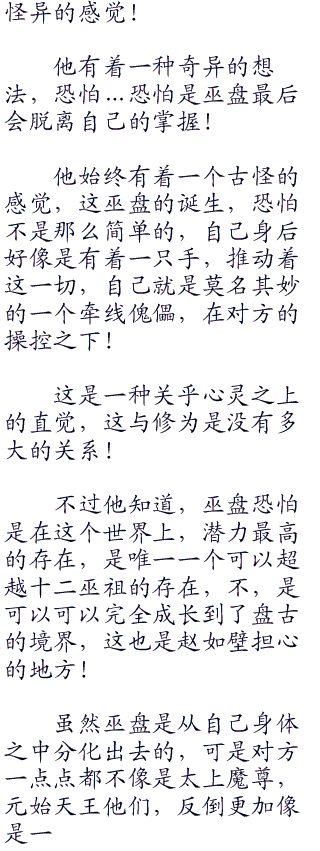 怪异的感觉！
他有着一种奇异的想
法，恐怕…恐怕是巫盘最后
会脱离自己的掌握！
他始终有着一个古怪的
感觉，这巫盘的诞生，恐怕
不是那么简单的，自己身后
好像是有着一只手，推动着
这一切，自己就是莫名其妙
的一个牵线傀儡，在对方的
操控之下！
这是一种关乎心灵之上
的直觉，这与修为是没有多
大的关系！
不过他知道，巫盘恐怕
是在这个世界上，潜力最高
的存在，是唯一一个可以超
越十二巫祖的存在，不，是
可以可以完全成长到了盘古
的境界，这也是赵如壁担心
的地方！
虽然巫盘是从自己身体
之中分化出去的，可是对方
一点点都不像是太上魔尊，
元始天王他们，反倒更加像
是一